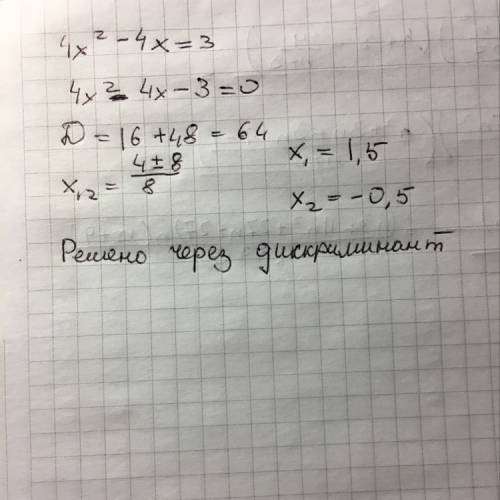 4x² - 4x = 3
4x² - 4x - 3 = 0
D = 16 + 48 = 64
x₁,₂ = (4 ± 8)/8
x₁ = 1,5
x₂ = -0,5
Решено через дискриминант